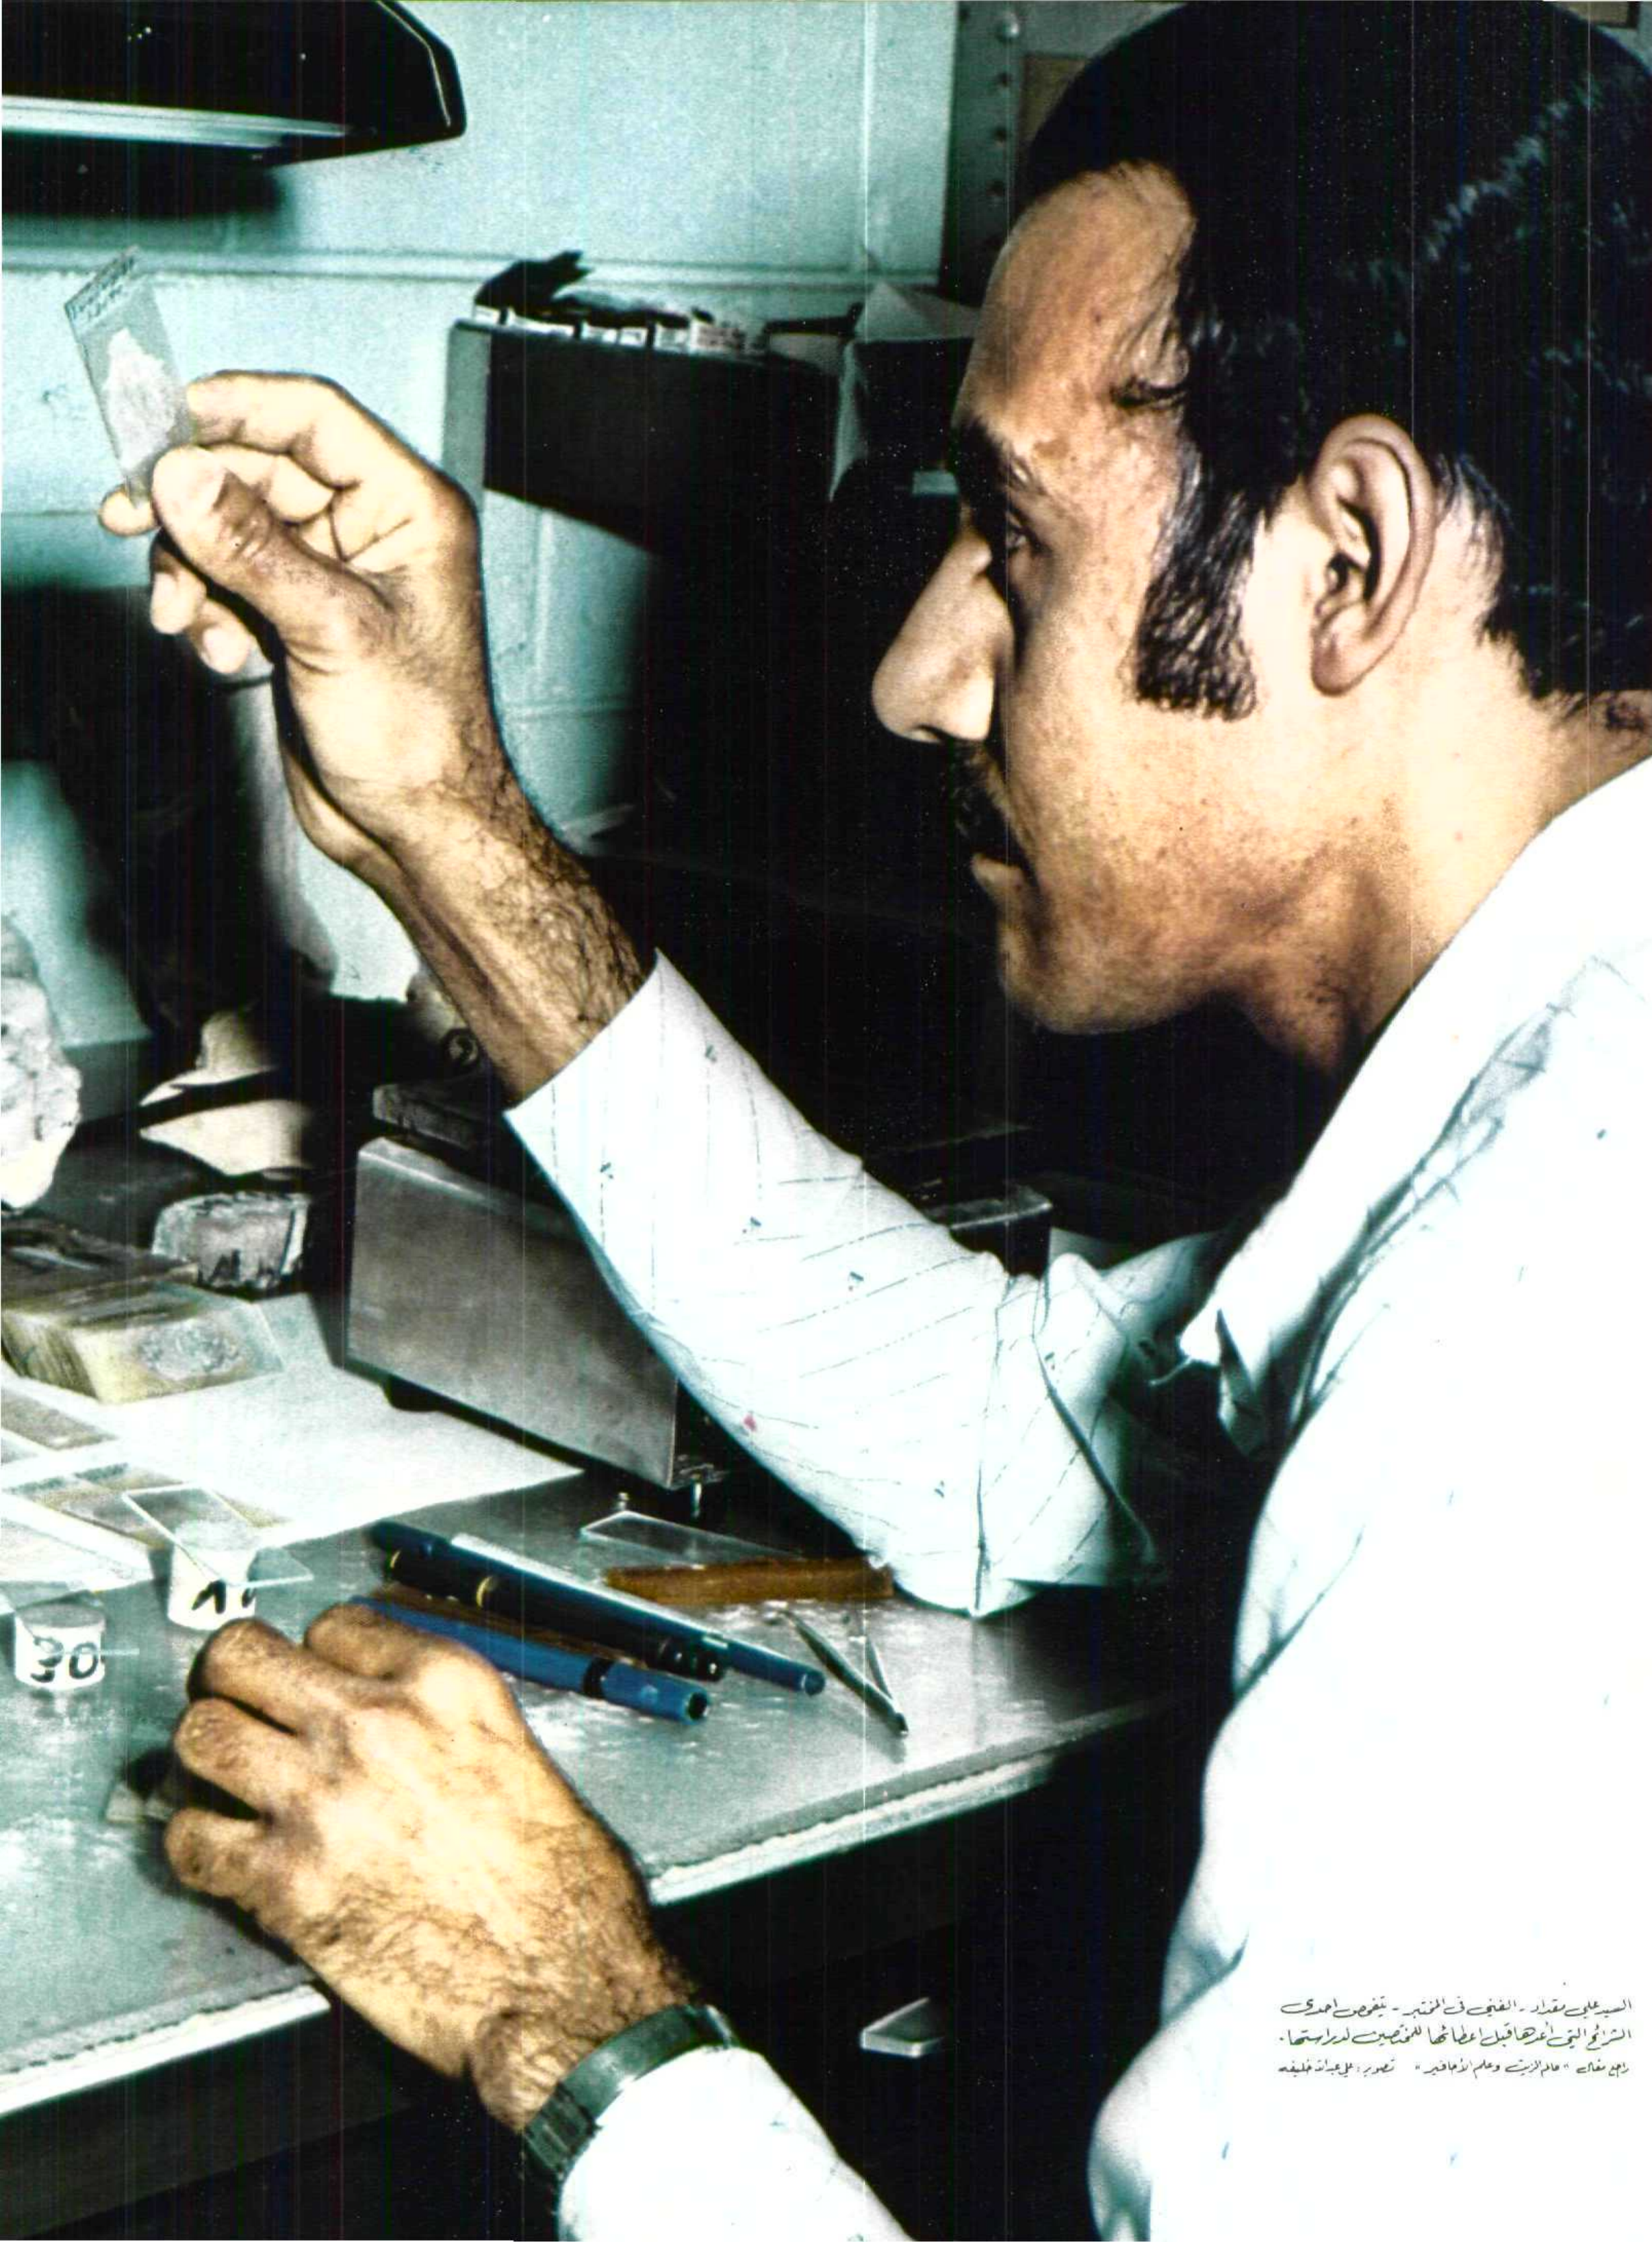 السيد علي مقداد - الفني في المختبر - يتفحص احدى
الشرائح التي أعدها قبل اعطائها للمختصين لدراستها.
راجع مقال "عالم الزيت وعلم الأحافير" تصوير: علي عبدالله خليفه
30